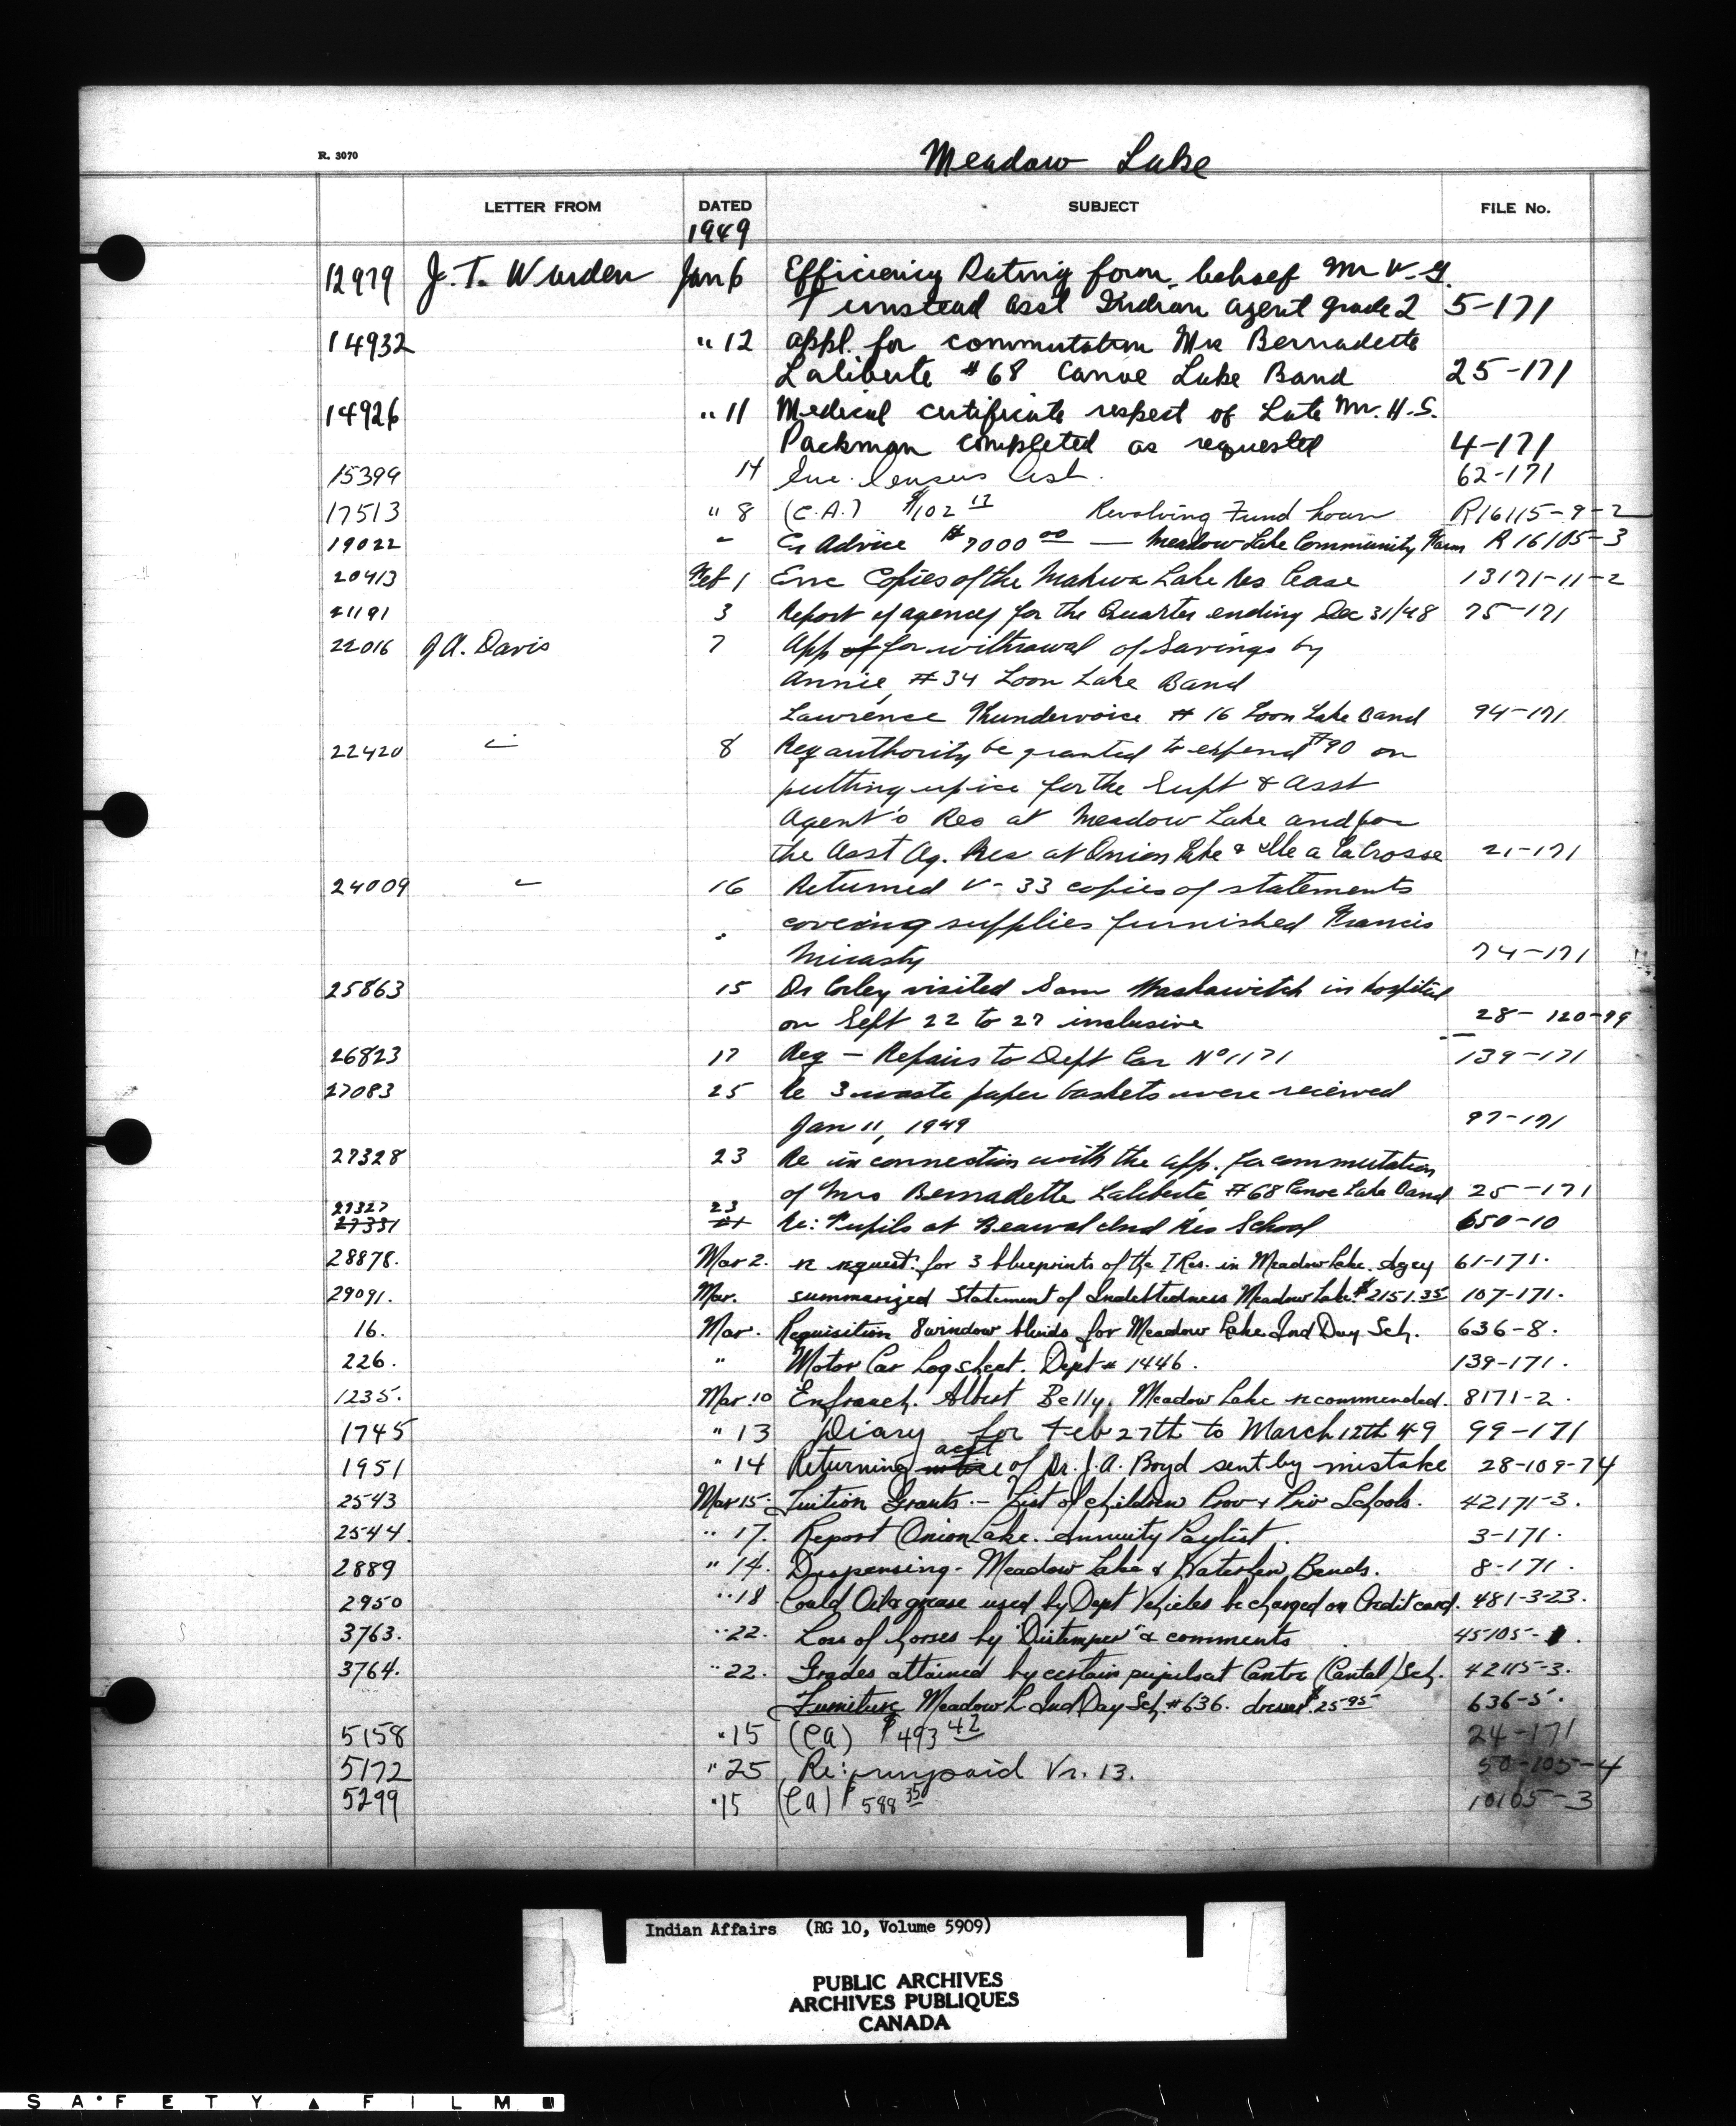 R. 3070
Meadow Lake
LETTER FROM DATED SUBJECT FILE No.
1949
12979 J. T. Warden Jan 6 Efficiency Rating form, behalf Mr V. G.
Tunstead asst Indian agent grade 2 5-171
14932 " 12 appl. for commutation Mrs Bernadette
Laliberte #68 Canoe Lake Band 25-171
14926 " 11 Medical certificate respect of Late Mr. H. S.
Packman completed as requested 4-171
15399 14 Enc. Census List. 62-171
17513 " 8 (C.A.) $102 17 Revolving Fund Loan R16115-9-2
19022 " Cr Advice $7000 00 — Meadow Lake Community Farm R 16105-3
20413 Feb 1 Enc Copies of the Makwa Lake Res lease 13171-11-2
21191 3 Report of agency for the Quarter ending Dec 31/48 75-171
22016 J A. Davis 7 App of for withrawal of Savings by
Annie #34 Loon Lake Band
Lawrence Thundervoice #16 Loon Lake Band 94-171
22420 " 8 Req authority be granted to expend $90 on
putting up ice for the Supt & Asst
Agent's Res at Meadow Lake and for
the Asst Ag. Res at Onion Lake & Ile a la Crosse 21-171
24009 " 16 Returned V-33 copies of statements
covering supplies furnished Francis
Micasty 74-171
25863 15 Dr Corley visited Sam in hospital
on Sept 22 to 27 inclusive 28-120-99
26823 17 Req - Repairs to Dept Car No 1171 139-171
27083 25 Re 3 waste paper baskets were recieved
Jan 11, 1949 97-171
27328 23 Re in connection with the app. for commutation
of Mrs Bernadette Laliberte #68 Canoe Lake Band 25-171
27327 23
27331 21 Re: Pupils at Beauval Ind Res School 650-10
28878. Mar 2. re request for 3 blueprints of the I Res. in Meadow Lake Agcy 61-171.
29091. Mar. summarized Statement of Indebtedness Meadow Lake $2151.35 107-171.
16. Mar. Requisition 8 window blinds for Meadow Lake Ind Day Sch. 636-8.
226. " Motor Car Log sheet. Dept # 1446. 139-171.
1235. Mar. 10 Enfranch. Albert Belly, Meadow Lake recommended. 8171-2.
1745 " 13 Diary for Feb 27th to March 12th 49 99-171
acct
1951 " 14 Returning of Dr. J. A. Boyd sent by mistake 28-109-74
2543 Mar 15. Tuition Grants. - List of children Prov & Priv Schools. 42171-3.
2544. " 17. Report Onion Lake. Annuity Paylist. 3-171.
2889 " 14. Dispensing - Meadow Lake & Waterhen Bands. 8-171.
2950 " 18 Could Oil & grease used by Dept Vehicles be charged on Credit card. 481-3-23.
3763. " 22. Loss of horses by "Distemper" & comments 45105-1.
3764. " 22. Grades attained by certain pupils at Cantre (Cantal) Sch. 42115-3.
Furniture Meadow L Ind Day Sch. #636. dresser $25 95 636-5.
5158 " 15 (CA) $493 42 24-171
5172 " 25 Re: unpaid Vr. 13. 50-105-4
5299 " 15 (CA) $588 35 10105-3
Indian Affairs (RG 10, Volume 5909)
PUBLIC ARCHIVES
ARCHIVES PUBLIQUES
CANADA
SAFETY FILM